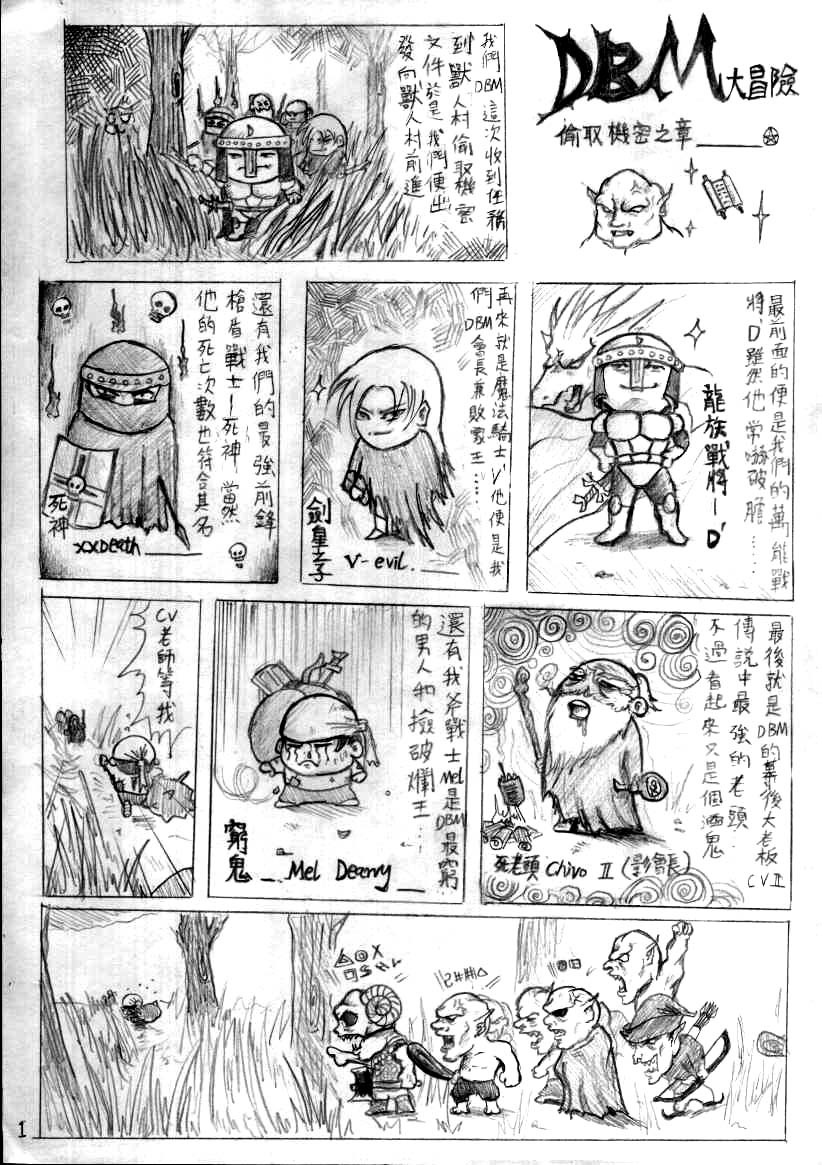 DBM大冒險
偷取機密之章
我們DBM這次收到任務
到獸人村偷取機密
文件於是我們便出
發向獸人村前進
最前面的便是我們的萬能戰
將,D'雖然他常嚇破膽……
龍族戰將-D'
再來就是魔法騎士V'他便是我
們DBM會長兼敗家王……
劍皇之子
V-evil.
還有我們的最強前鋒
槍盾戰士-死神當然
他的死亡次數也符合其名
死神
xxDeath
最後就是DBM的幕後大老板CVII
傳說中最強的老頭
不過看起來又是個酒鬼
死老頭 Chivo II (影會長)
還有我斧戰士Mel是DBM最窮
的男人和撿破爛王…
窮鬼
Mel Dearry
CV老師等我
1